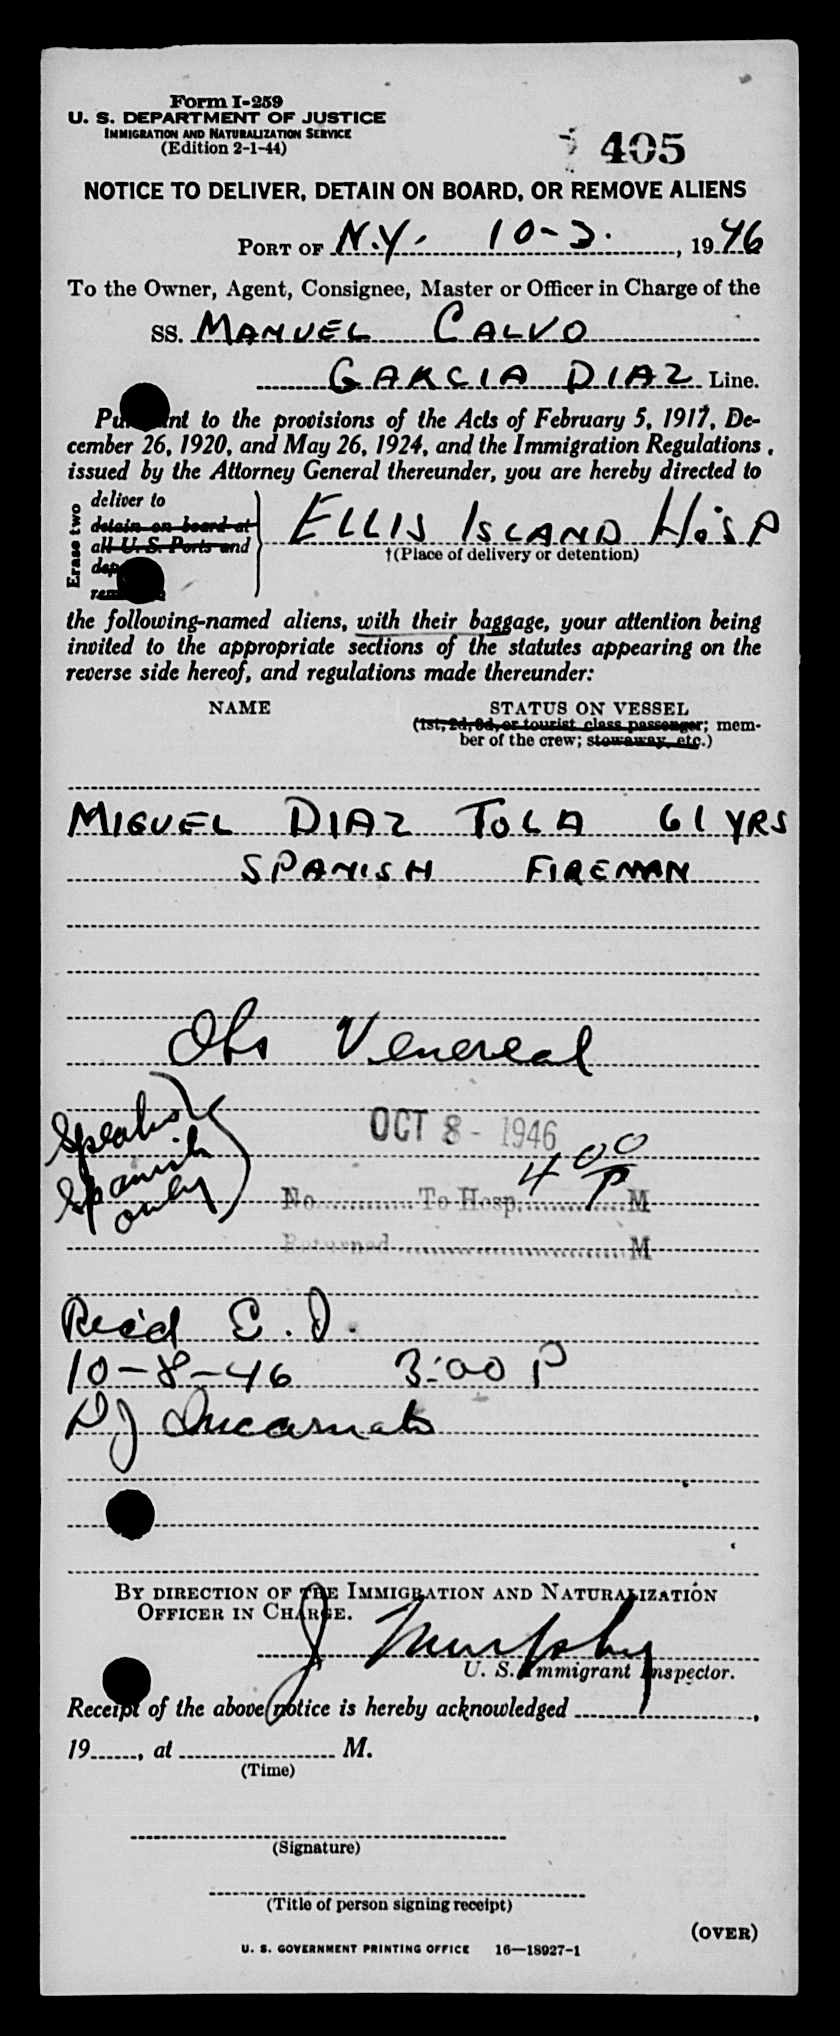 Form I-259
U. S. DEPARTMENT OF JUSTICE
IMMIGRATION AND NATURALIZATION SERVICE
(Edition 2-1-44)
405
NOTICE TO DELIVER, DETAIN ON BOARD, OR REMOVE ALIENS
PORT OF N.Y. 10-3. , 1946
To the Owner, Agent, Consignee, Master or Officer in Charge of the
SS. MANUEL CALVO
GARCIA DIAZ Line.
to the provisions of the Acts of February 5, 1917, De-
cember 26, 1920, and May 26, 1924, and the Immigration Regulations
issued by the Attorney General thereunder, you are hereby directed to
Erase two
deliver to
detain on board at
all U. S. Ports and
ELLIS ISLAND HOSP
†(Place of delivery or detention)
the following-named aliens, with their baggage, your attention being
invited to the appropriate sections of the statutes appearing on the
reverse side hereof, and regulations made thereunder:
NAME STATUS ON VESSEL
(1st, 2d, 3d, or tourist class passenger; mem-
ber of the crew; stowaway, etc.)
MIGUEL DIAZ TOLA 61 YRS
SPANISH FIREMAN
Obs Venereal
Speaks
Spanish
only
OCT 8 - 1946
No. To Hosp. 4 00 P M
Returned M
Rec'd E. I.
10-8-46 3:00 P
DJ Incarnato
BY DIRECTION OF THE IMMIGRATION AND NATURALIZATION
OFFICER IN CHARGE.
J Murphy
U. S. Immigrant Inspector.
Receipt of the above notice is hereby acknowledged ,
19 , at M.
(Time)
(Signature)
(Title of person signing receipt)
(OVER)
U. S. GOVERNMENT PRINTING OFFICE 16—18927-1